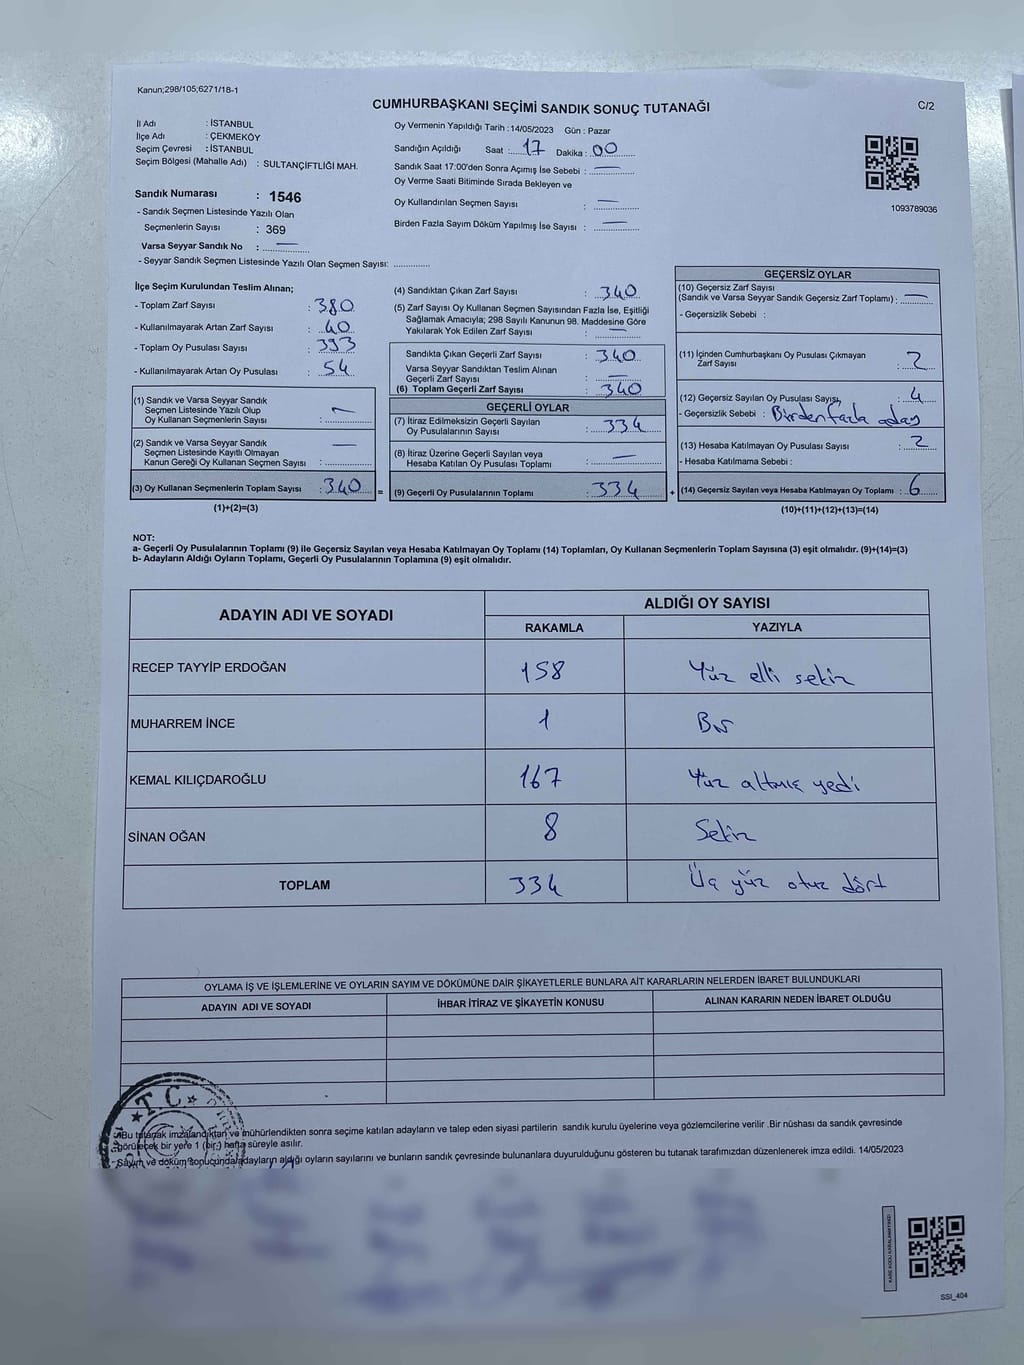 Kanun;298/105;6271/18-1
CUMHURBAŞKANI SEÇİMİ SANDIK SONUÇ TUTANAĞI
C/2
İl Adı : İSTANBUL
İlçe Adı : ÇEKMEKÖY
Seçim Çevresi : İSTANBUL
Seçim Bölgesi (Mahalle Adı) : SULTANÇİFTLİĞİ MAH.
Sandık Numarası : 1546
- Sandık Seçmen Listesinde Yazılı Olan
Seçmenlerin Sayısı : 369
Varsa Seyyar Sandık No : —
- Seyyar Sandık Seçmen Listesinde Yazılı Olan Seçmen Sayısı: ............
Oy Vermenin Yapıldığı Tarih : 14/05/2023 Gün : Pazar
Sandığın Açıldığı Saat : 17 Dakika : 00
Sandık Saat 17:00'den Sonra Açımış İse Sebebi : —
Oy Verme Saati Bitiminde Sırada Bekleyen ve
Oy Kullandırılan Seçmen Sayısı : —
Birden Fazla Sayım Döküm Yapılmış İse Sayısı : —
1093789036
İlçe Seçim Kurulundan Teslim Alınan;
- Toplam Zarf Sayısı : 380
- Kullanılmayarak Artan Zarf Sayısı : 40
- Toplam Oy Pusulası Sayısı : 393
- Kullanılmayarak Artan Oy Pusulası : 54
(1) Sandık ve Varsa Seyyar Sandık
Seçmen Listesinde Yazılı Olup
Oy Kullanan Seçmenlerin Sayısı : —
(2) Sandık ve Varsa Seyyar Sandık
Seçmen Listesinde Kayıtlı Olmayan
Kanun Gereği Oy Kullanan Seçmen Sayısı : —
(3) Oy Kullanan Seçmenlerin Toplam Sayısı : 340 =
(1)+(2)=(3)
(4) Sandıktan Çıkan Zarf Sayısı : 340
(5) Zarf Sayısı Oy Kullanan Seçmen Sayısından Fazla İse, Eşitliği
Sağlamak Amacıyla; 298 Sayılı Kanunun 98. Maddesine Göre
Yakılarak Yok Edilen Zarf Sayısı : —
Sandıkta Çıkan Geçerli Zarf Sayısı : 340
Varsa Seyyar Sandıktan Teslim Alınan
Geçerli Zarf Sayısı : —
(6) Toplam Geçerli Zarf Sayısı : 340
GEÇERLİ OYLAR
(7) İtiraz Edilmeksizin Geçerli Sayılan
Oy Pusulalarının Sayısı : 334
(8) İtiraz Üzerine Geçerli Sayılan veya
Hesaba Katılan Oy Pusulası Toplamı : —
(9) Geçerli Oy Pusulalarının Toplamı : 334 +
GEÇERSİZ OYLAR
(10) Geçersiz Zarf Sayısı
(Sandık ve Varsa Seyyar Sandık Geçersiz Zarf Toplamı) : —
- Geçersizlik Sebebi :
(11) İçinden Cumhurbaşkanı Oy Pusulası Çıkmayan
Zarf Sayısı : 2
(12) Geçersiz Sayılan Oy Pusulası Sayısı : 4
- Geçersizlik Sebebi : Birden fazla aday
(13) Hesaba Katılmayan Oy Pusulası Sayısı : 2
- Hesaba Katılmama Sebebi :
(14) Geçersiz Sayılan veya Hesaba Katılmayan Oy Toplamı : 6
(10)+(11)+(12)+(13)=(14)
NOT:
a- Geçerli Oy Pusulalarının Toplamı (9) ile Geçersiz Sayılan veya Hesaba Katılmayan Oy Toplamı (14) Toplamları, Oy Kullanan Seçmenlerin Toplam Sayısına (3) eşit olmalıdır. (9)+(14)=(3)
b- Adayların Aldığı Oyların Toplamı, Geçerli Oy Pusulalarının Toplamına (9) eşit olmalıdır.
ADAYIN ADI VE SOYADI
ALDIĞI OY SAYISI
RAKAMLA YAZIYLA
RECEP TAYYİP ERDOĞAN 158 Yüz elli sekiz
MUHARREM İNCE 1 Bir
KEMAL KILIÇDAROĞLU 167 Yüz altmış yedi
SİNAN OĞAN 8 Sekiz
TOPLAM 334 Üç yüz otuz dört
OYLAMA İŞ VE İŞLEMLERİNE VE OYLARIN SAYIM VE DÖKÜMÜNE DAİR ŞİKAYETLERLE BUNLARA AİT KARARLARIN NELERDEN İBARET BULUNDUKLARI
ADAYIN ADI VE SOYADI İHBAR İTİRAZ VE ŞİKAYETİN KONUSU ALINAN KARARIN NEDEN İBARET OLDUĞU
★ T.C. ★
- Bu tutanak imzalandıktan ve mühürlendikten sonra seçime katılan adayların ve talep eden siyasi partilerin sandık kurulu üyelerine veya gözlemcilerine verilir .Bir nüshası da sandık çevresinde
görülecek bir yere 1 (bir) hafta süreyle asılır.
- Sayım ve döküm sonucunda adayların aldığı oyların sayılarını ve bunların sandık çevresinde bulunanlara duyurulduğunu gösteren bu tutanak tarafımızdan düzenlenerek imza edildi. 14/05/2023
SSI_404